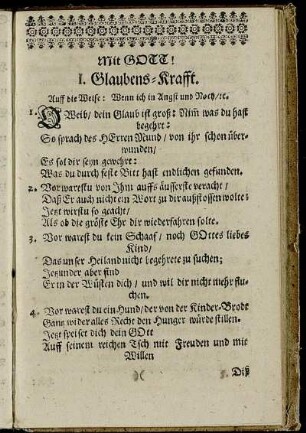 Mit GOTT!
I. Glaubens-Krafft.
Auff die Weise: Wenn ich in Angst und Noth/ ꝛc.
1. O Weib/ dein Glaub ist groß: Nim̃ was du hast
begehr:
So sprach des HErren Mund/ von ihr schon über-
wunden/
Es sol dir seyn gewehrt:
Was du durch feste Bitt hast endlichen gefunden.
2. Vor warestu von Ihm auffs äusserste veracht/
Daß Er auch nicht ein Wort zu dir auffstossen wolte:
Jetzt wirstu so geacht/
Als ob die gröste Ehr dir wiederfahren solte.
3. Vor warest du kein Schaaf/ noch GOttes liebes
Kind/
Das unser Heiland nicht begehrete zu suchen;
Jetzunder aber sind
Er in der Wüsten dich/ und wil dir nicht mehr flu-
chen.
4. Vor warest du ein Hund/ der von der Kinder-Brodt
Gantz wider alles Recht den Hunger würde stillen.
Jetzt speiset dich dein GOtt
Auff seinem reichen Tsch mit Freuden und mit
Willen
)(
5. Diß